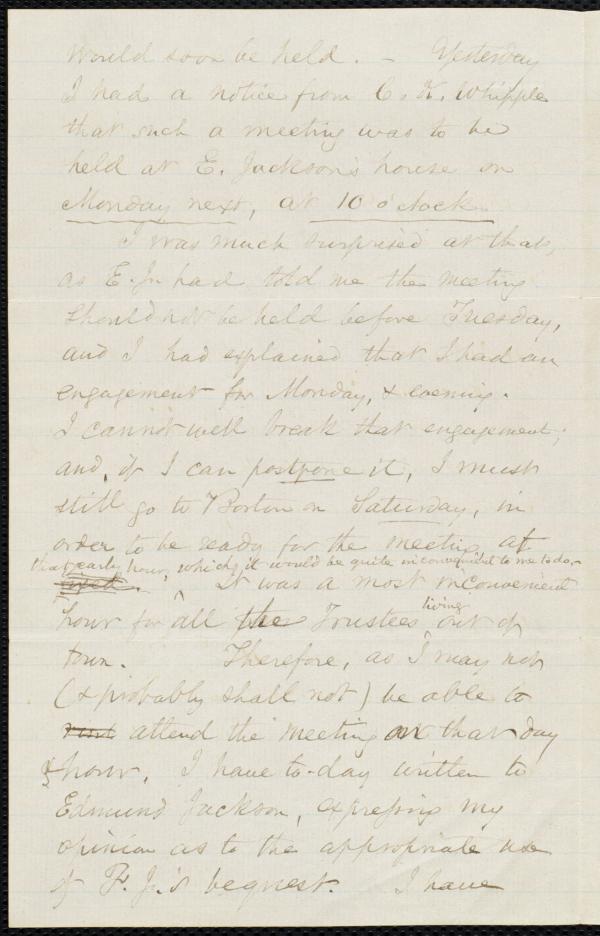 would soon be held. – Yesterday
I had a notice from C. K. Whipple
that such a meeting was to be
held at E. Jackson's house on
Monday next, at 10 o'clock.
I was much surprised at that,
as E. J. had told me the meeting
should not be held before Tuesday,
and I had explained that I had an
engagement for Monday, & evening.
I cannot well break that engagement;
and, if I can postpone it, I must
still go to Boston on Saturday, in
order to be ready for the meeting at
that early hour, which it would be quite inconvenient to me to do.
It was a most inconvenient
hour for all the Trustees living out of
town. Therefore, as I may not
(& probably shall not) be able to
attend the meeting on that day
& hour, I have to-day written to
Edmund Jackson, expressing my
opinion as to the appropriate use
of F. J.'s bequest. I have